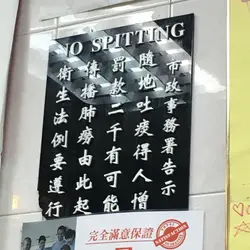 NO SPITTING
市政事務署告示
隨地吐痰得人憎
罰款二千有可能
傳播肺癆由此起
衛生法例要遵行
完全滿意保證
SATISFACTION